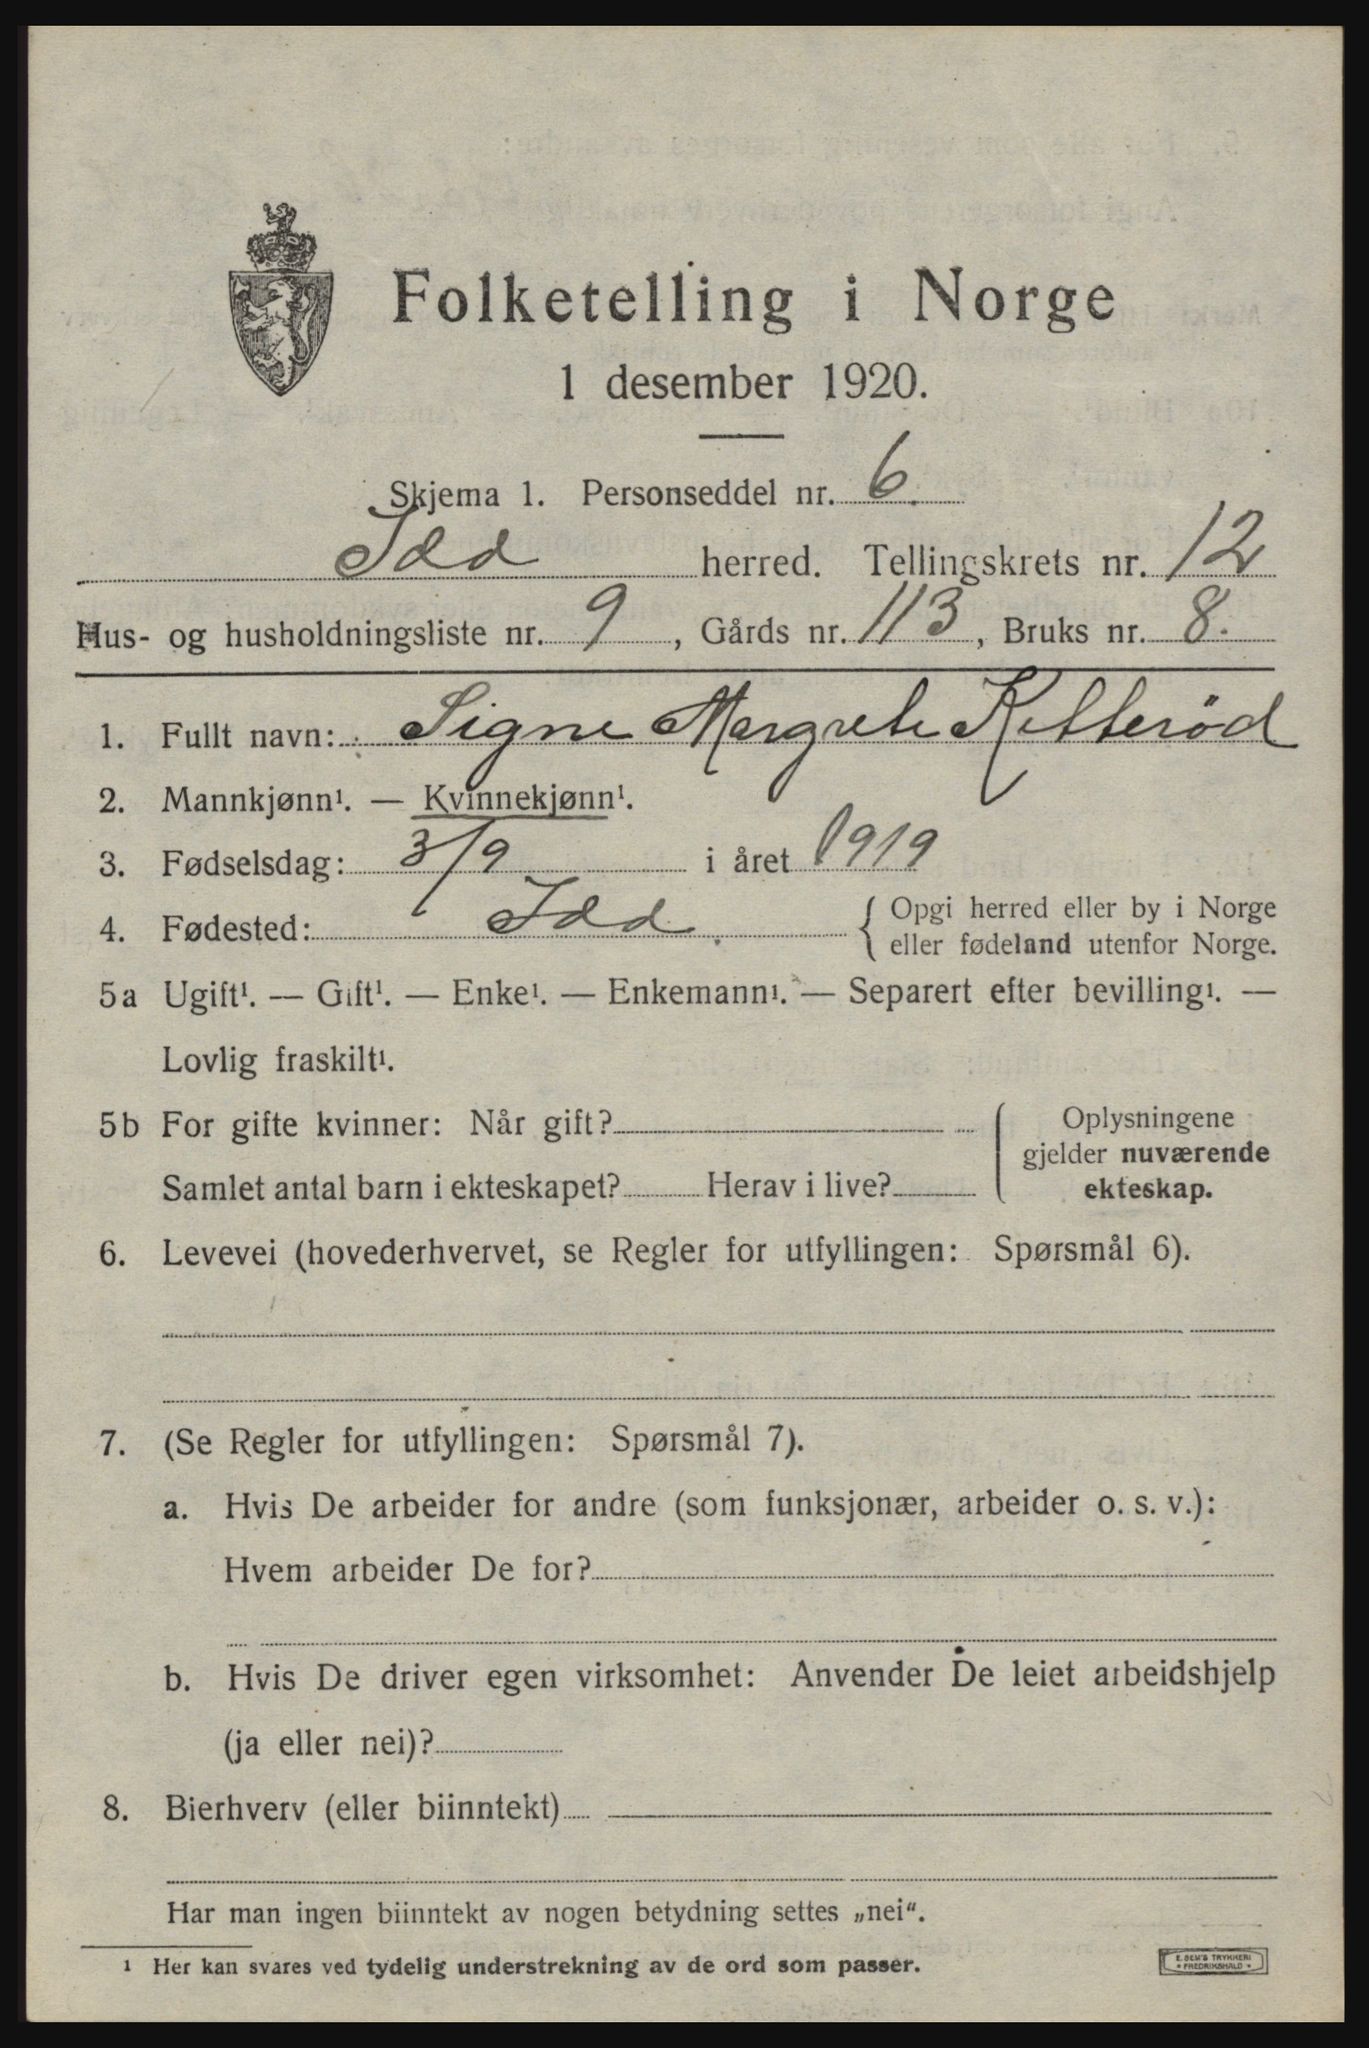 Folketelling i Norge
1 desember 1920.
Skjema 1. Personseddel nr. 6.
Idd herred. Tellingskrets nr. 12
Hus- og husholdningsliste nr. 9, Gårds nr. 113, Bruks nr. 8.
1. Fullt navn: Signe Margrete Ketterød
2. Mannkjønn¹. — Kvinnekjønn¹.
3. Fødselsdag: 3/9 i året 1919
4. Fødested: Idd. { Opgi herred eller by i Norge
eller fødeland utenfor Norge.
5a Ugift¹. — Gift¹. — Enke¹. — Enkemann¹. — Separert efter bevilling¹. —
Lovlig fraskilt¹.
5b For gifte kvinner: Når gift?
Samlet antal barn i ekteskapet? Herav i live?
Oplysningene
gjelder nuværende
ekteskap.
6. Levevei (hovederhvervet, se Regler for utfyllingen: Spørsmål 6).
7. (Se Regler for utfyllingen: Spørsmål 7).
a. Hvis De arbeider for andre (som funksjonær, arbeider o. s. v.):
Hvem arbeider De for?
b. Hvis De driver egen virksomhet: Anvender De leiet arbeidshjelp
(ja eller nei)?
8. Bierhverv (eller biinntekt)
Har man ingen biinntekt av nogen betydning settes „nei“.
¹ Her kan svares ved tydelig understrekning av de ord som passer.
E. SEM'S TRYKKERI
* FREDRIKSHALD *